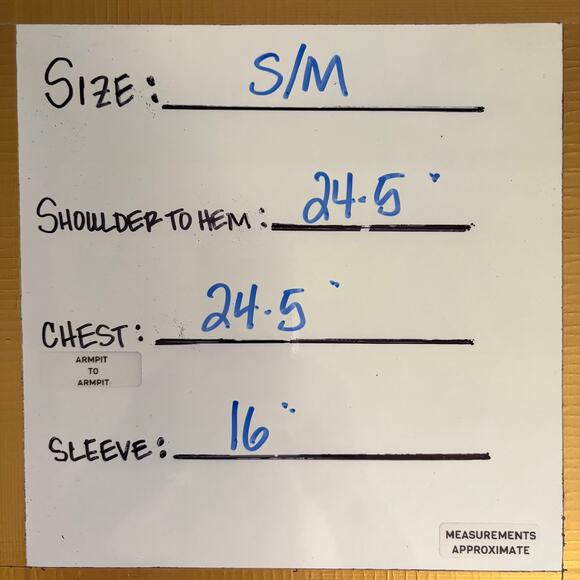 SIZE: S/M
SHOULDER TO HEM: 24.5"
CHEST: 24.5"
ARMPIT
TO
ARMPIT
SLEEVE: 16"
MEASUREMENTS
APPROXIMATE